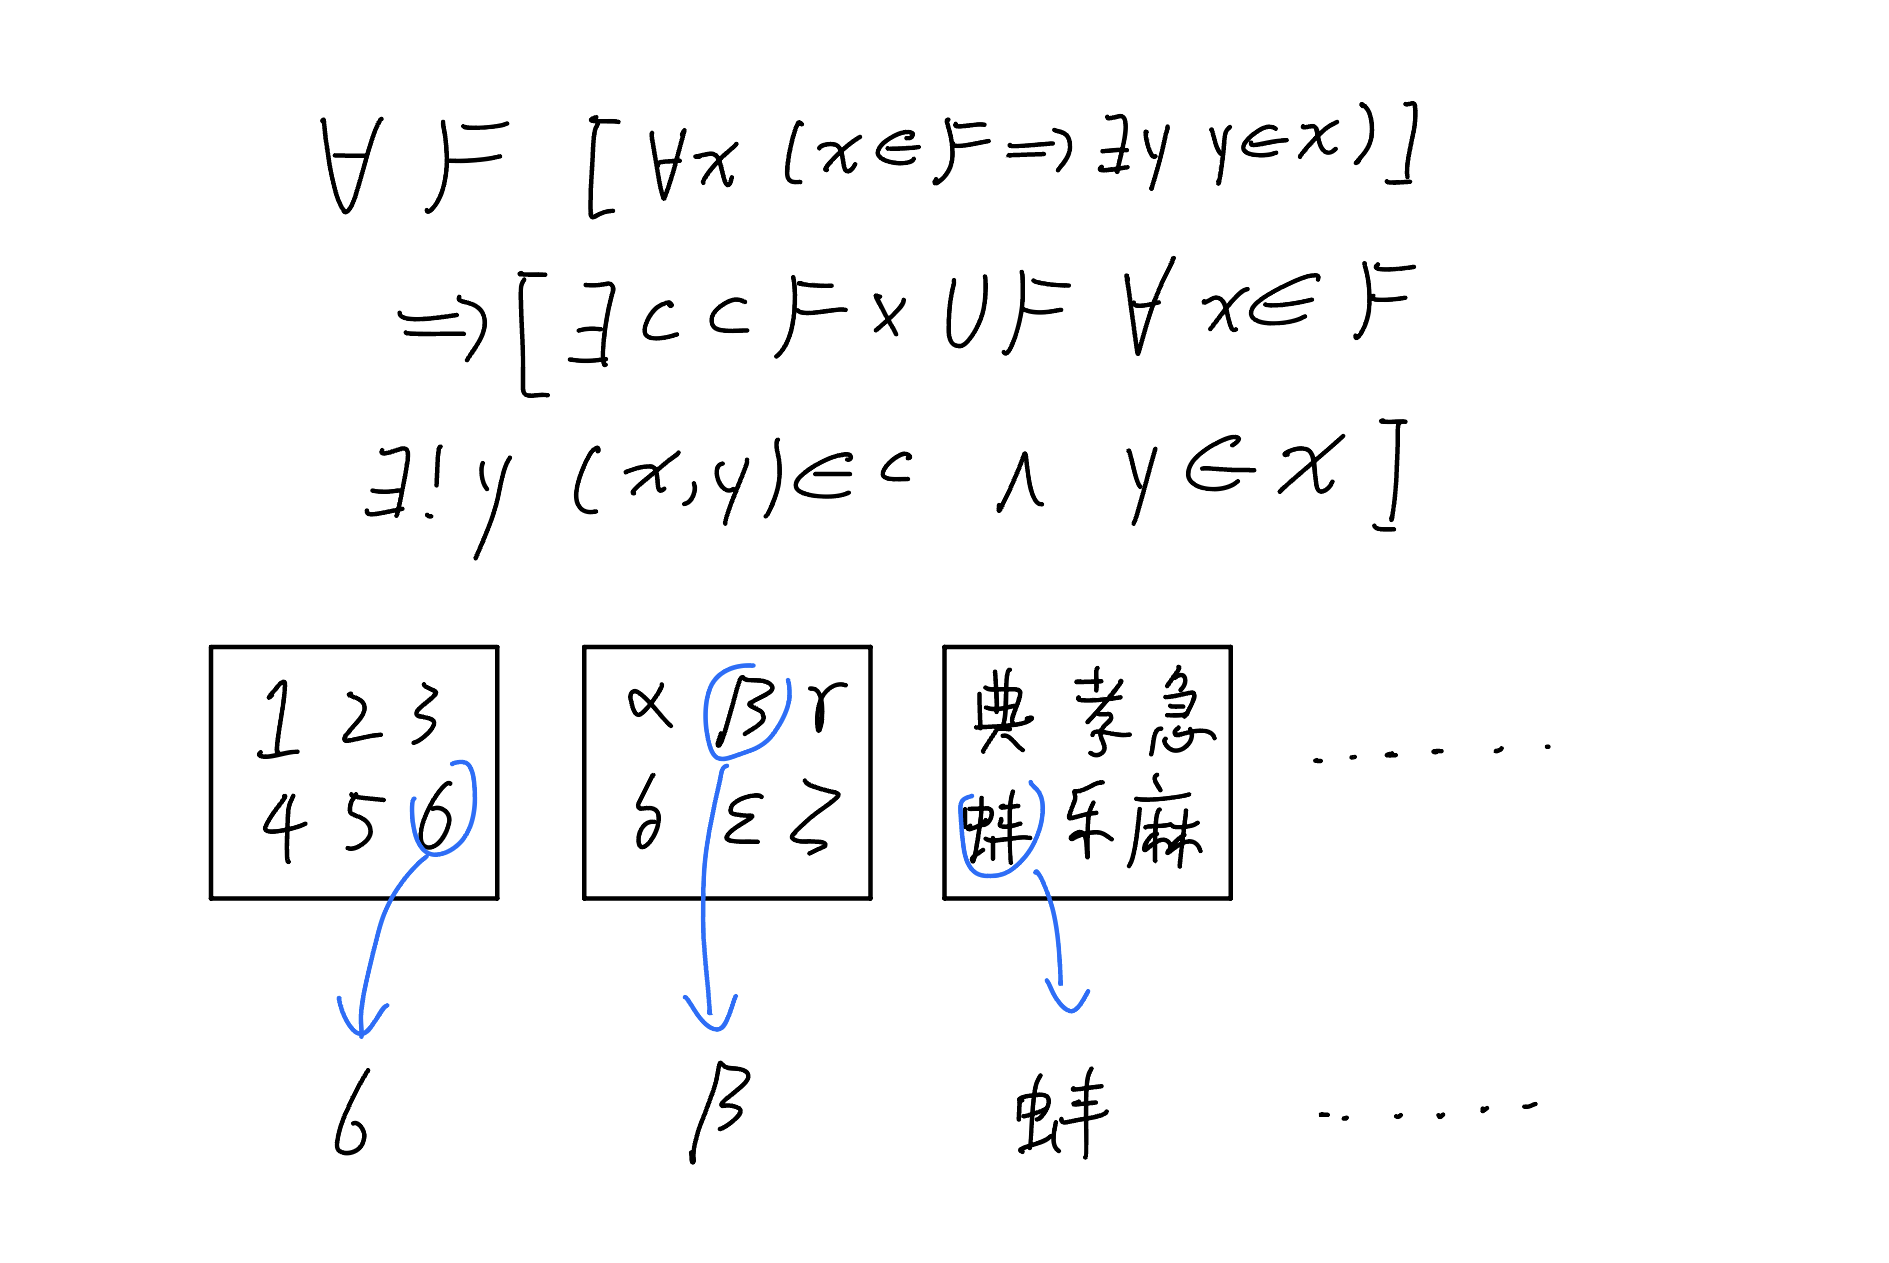 ∀ F [∀x (x∈F⇒∃y y∈x)]
⇒[∃c⊂F×∪F ∀x∈F
∃!y (x,y)∈c ∧ y∈x]
1 2 3
4 5 6
α β γ
δ ε ζ
典 孝 急
蚌 乐 麻
......
6
β
蚌
......